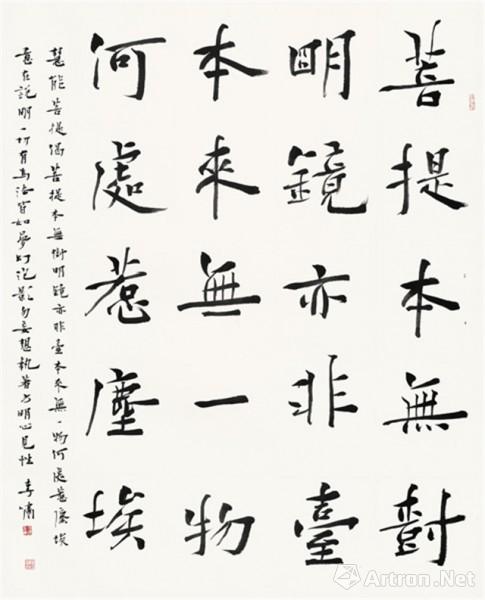 菩提本無樹
明鏡亦非臺
本來無一物
何處惹塵埃
慧能菩提偈菩提本無樹明鏡亦非臺本來無一物何處惹塵埃
意在說明一切有為法皆如夢幻泡影勿妄想執著方明心見性 李嘯
雅昌艺术网
Artron.Net